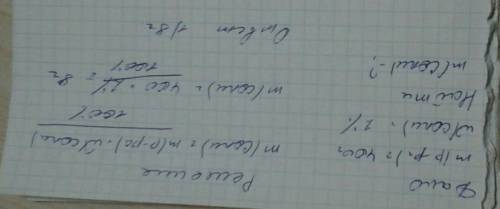 Дано
Решение
m(р.р.) = 400г
m(соли) = m(р-ра) · W(соли)
100%
W(соли) = 2%
Найти
m(соли) = 400 · 2% = 8г
100%
m(соли) -?
Ответ 8г